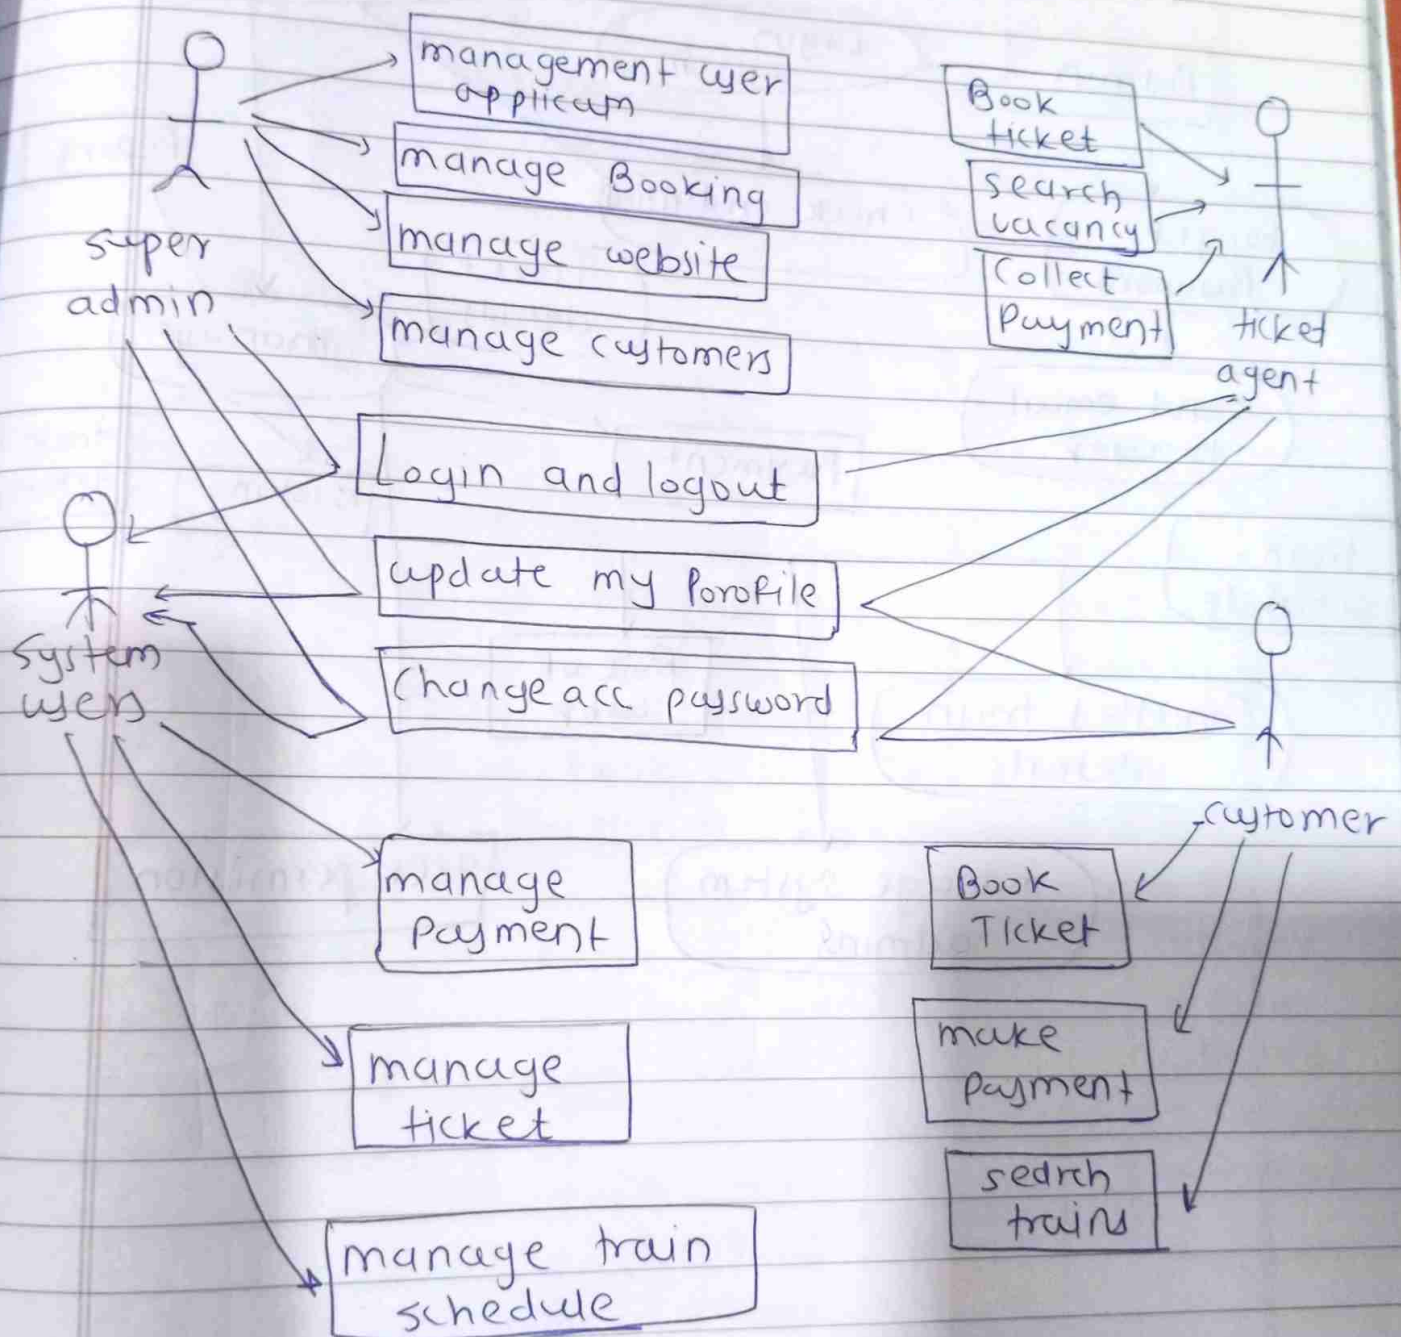 management user
applicam
manage Booking
manage website
manage customers
super
admin
Book
ticket
search
vacancy
Collect
Payment
ticket
agent
Login and logout
update my Porofile
Change acc password
system
users
customer
manage
Payment
manage
ticket
manage train
schedule
Book
Ticket
make
payment
search
trains